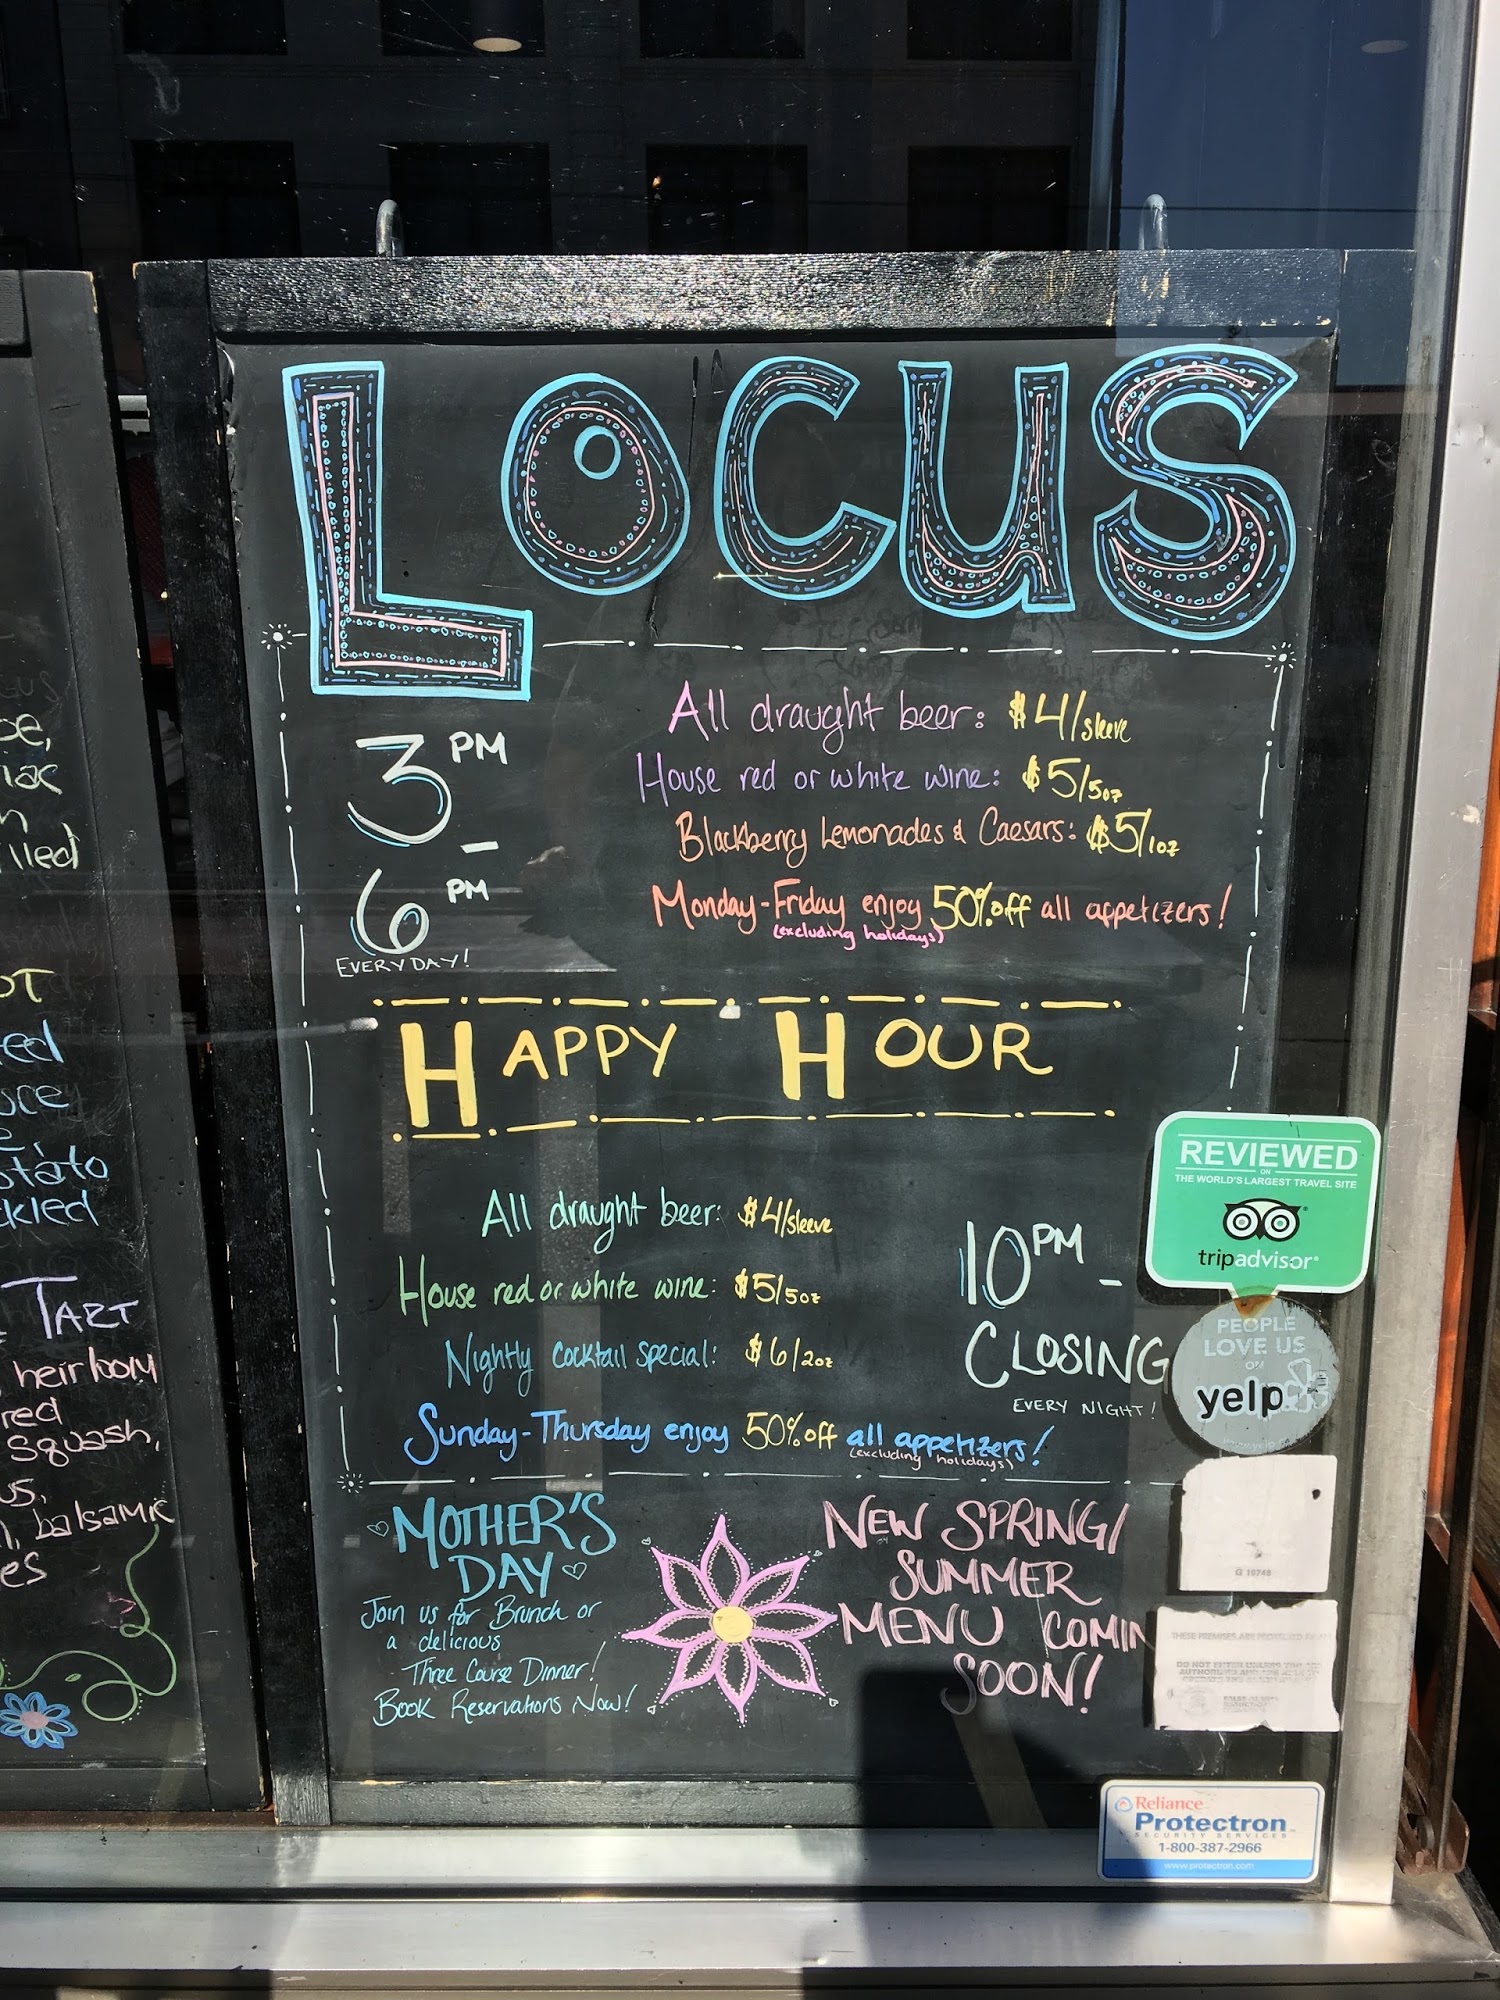 LOCUS
3PM
–
6PM
EVERYDAY!
All draught beer: $4/sleeve
House red or white wine: $5/5oz
Blackberry Lemonades & Caesars: $5/1oz
Monday-Friday enjoy 50% off all appetizers!
(excluding holidays)
HAPPY HOUR
All draught beer: $4/sleeve
House red or white wine: $5/5oz
Nightly cocktail special: $6/2oz
Sunday-Thursday enjoy 50% off all appetizers!
(excluding holidays)
10PM –
CLOSING
EVERY NIGHT!
MOTHER'S
DAY
Join us for Brunch or
a delicious
Three Course Dinner!
Book Reservations Now!
NEW SPRING/
SUMMER
MENU COMIN
SOON!
REVIEWED
ON
THE WORLD'S LARGEST TRAVEL SITE
tripadvisor
PEOPLE
LOVE US
ON
yelp
G 10748
THESE PREMISES ARE PROTECTED
DO NOT ENTER UNLESS
Reliance
Protectron
SECURITY SERVICES
1-800-387-2966
www.protectron.com
illed
OT
ed
tato
kled
TART
heirloom
red
squash,
us,
balsamic
es